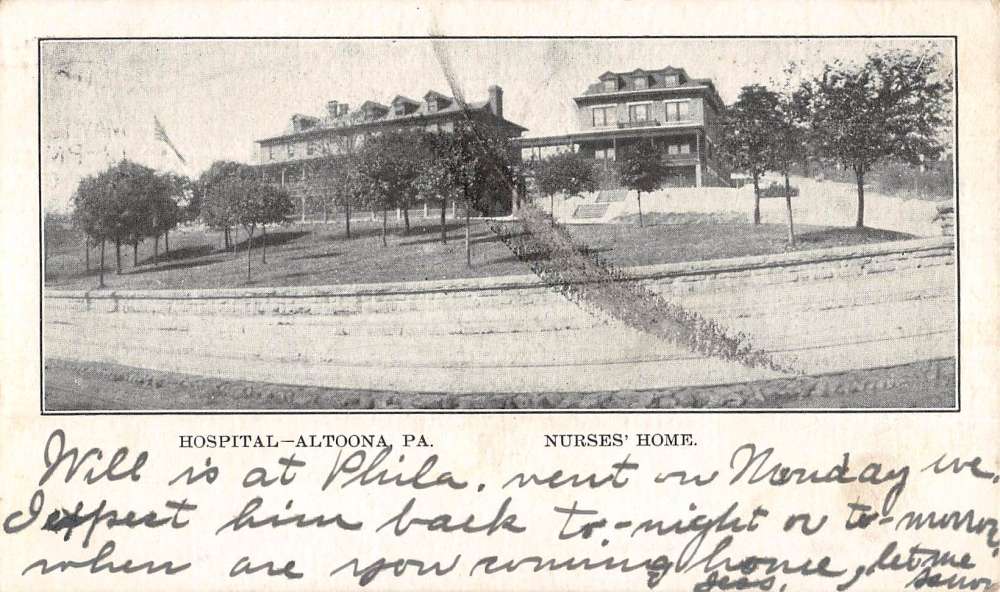 HOSPITAL—ALTOONA, PA. NURSES' HOME.
Will is at Phila. went on Monday we
I expect him back to-night or to-morrow
when are you coming home, let me